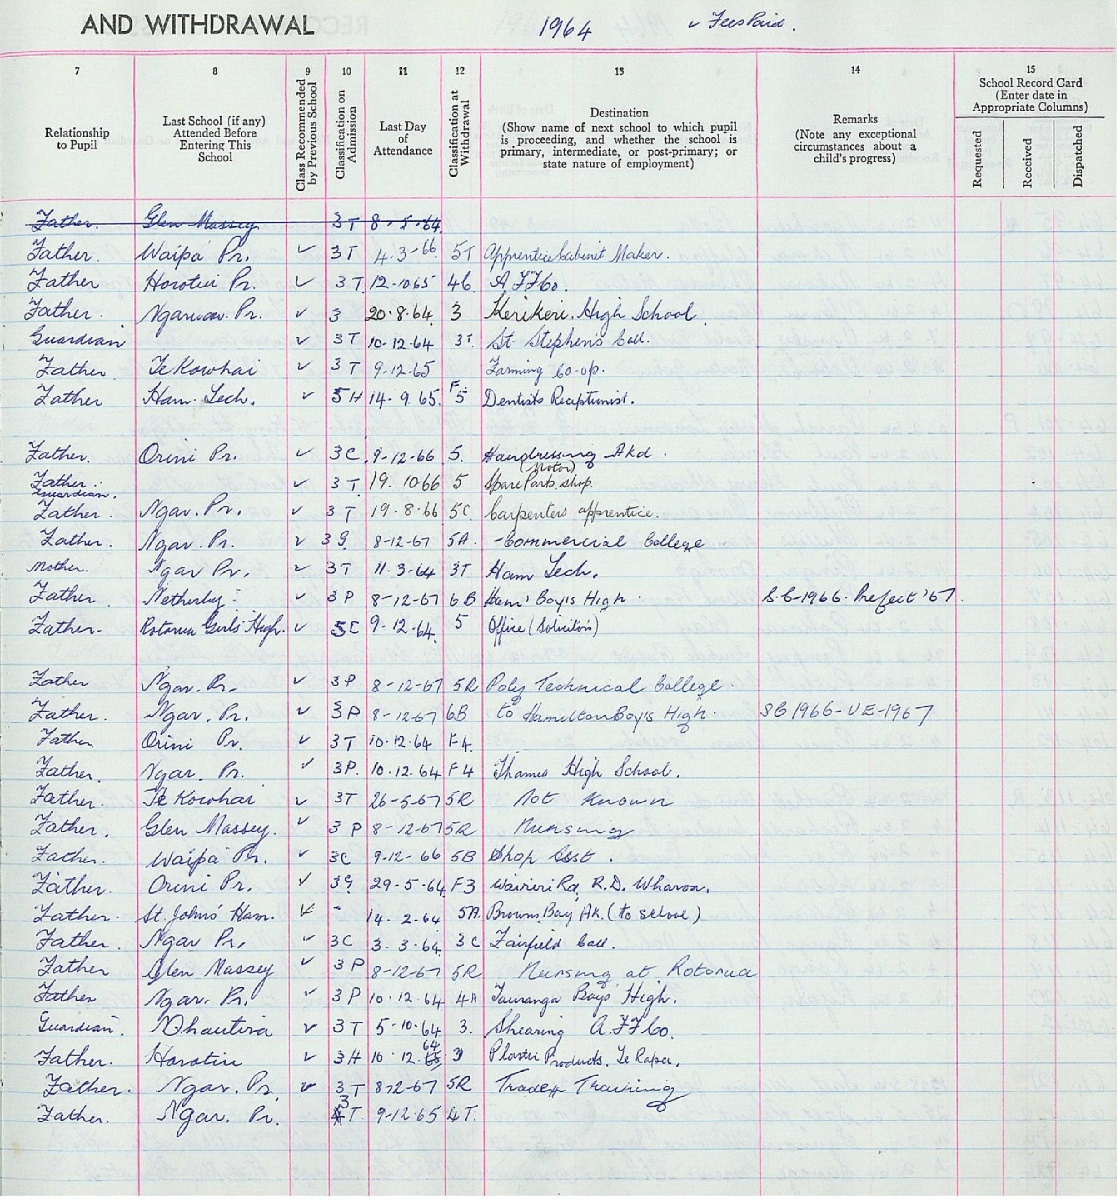 AND WITHDRAWAL 1964 ✓ Fees Paid.
7 8 9 10 11 12 13 14 15
Relationship to Pupil
Last School (if any) Attended Before Entering This School
Class Recommended by Previous School
Classification on Admission
Last Day of Attendance
Classification at Withdrawal
Destination
(Show name of next school to which pupil is proceeding, and whether the school is primary, intermediate, or post-primary; or state nature of employment)
Remarks
(Note any exceptional circumstances about a child's progress)
School Record Card
(Enter date in Appropriate Columns)
Requested
Received
Dispatched
Father. Glen Massey 3T 8-5-64
Father. Waipa Pr. ✓ 3T 4.3-66 5T Apprentice Cabinet Maker.
Father Horotiu Pr. ✓ 3T 12-10 65 4G A.FFCo.
Father. Pr. ✓ 3 20.8.64 3 Kerikeri High School
Guardian ✓ 3T 10-12-64 3T St. Stephen's Coll.
Father Te Kowhai ✓ 3T 9-12-65 Farming Co-op.
Father Ham. Tech. ✓ 5H 14.9.65. F5 Dentists Receptionist.
Father. Orini Pr. ✓ 3C 9-12-66 5. Hairdressing Akd
Father. Guardian. ✓ 3T. 19.10 66 5 Spare Parts shop. (Motor)
Father. Ngar. Pr. ✓ 3T 19.8.66 5C Carpenters apprentice.
Father. Ngar Pr. ✓ 3G 8-12-67 5A. -Commercial College
Mother. Ngar Pr. ✓ 3T 11.3-64 3T Ham Tech.
Father. Netherby ✓ 3P 8-12-67 6B Ham' Boy's High. S.C-1966. Prefect '67.
Father- Rotorua Girls' High. ✓ 5C 9-12-64. 5 Office (Solicitors)
Father Ngar. Pr. ✓ 3P 8-12-67 5R Poly Technical College.
Father. Ngar. Pr. ✓ 3P 8-12-67 6B to Hamilton Boy's High. SC 1966-UE-1967
Father Orini Pr. ✓ 3T 10-12-64 F4.
Father. Ngar. Pr. ✓ 3P. 10.12.64 F4 Thames High School.
Father. Te Kowhai ✓ 3T 26-5-67 5R Not known
Father. Glen Massey. ✓ 3P 8-12-67 5R Nursing
Father. Waipa Pr. ✓ 3C 9-12-66 5B Shop Asst.
Father. Orini Pr. ✓ 3G 29-5-64 F3 Rd. R.D.
Father. St. Johns' Ham. ✓ - 14.2.64 5A. Browns Bay Ak. (to school)
Father. Ngar Pr. ✓ 3C 3.3.64. 3C Fairfield Coll.
Father Glen Massey ✓ 3P 8-12-67 5R Nursing at Rotorua
Father Ngar. Pr. ✓ 3P 10.12.64 4A Tauranga Boys' High.
Guardian. Ohautira ✓ 3T 5-10.64 3. Shearing A.FFCo.
Father. Horotiu ✓ 3H 10.12.64 3 Plaster Products. Te Rapa.
Father. Ngar. Pr. ✓ 3T 8-12-67 5R Trade Training
Father. Ngar. Pr. 3T. 9-12-65 4T.